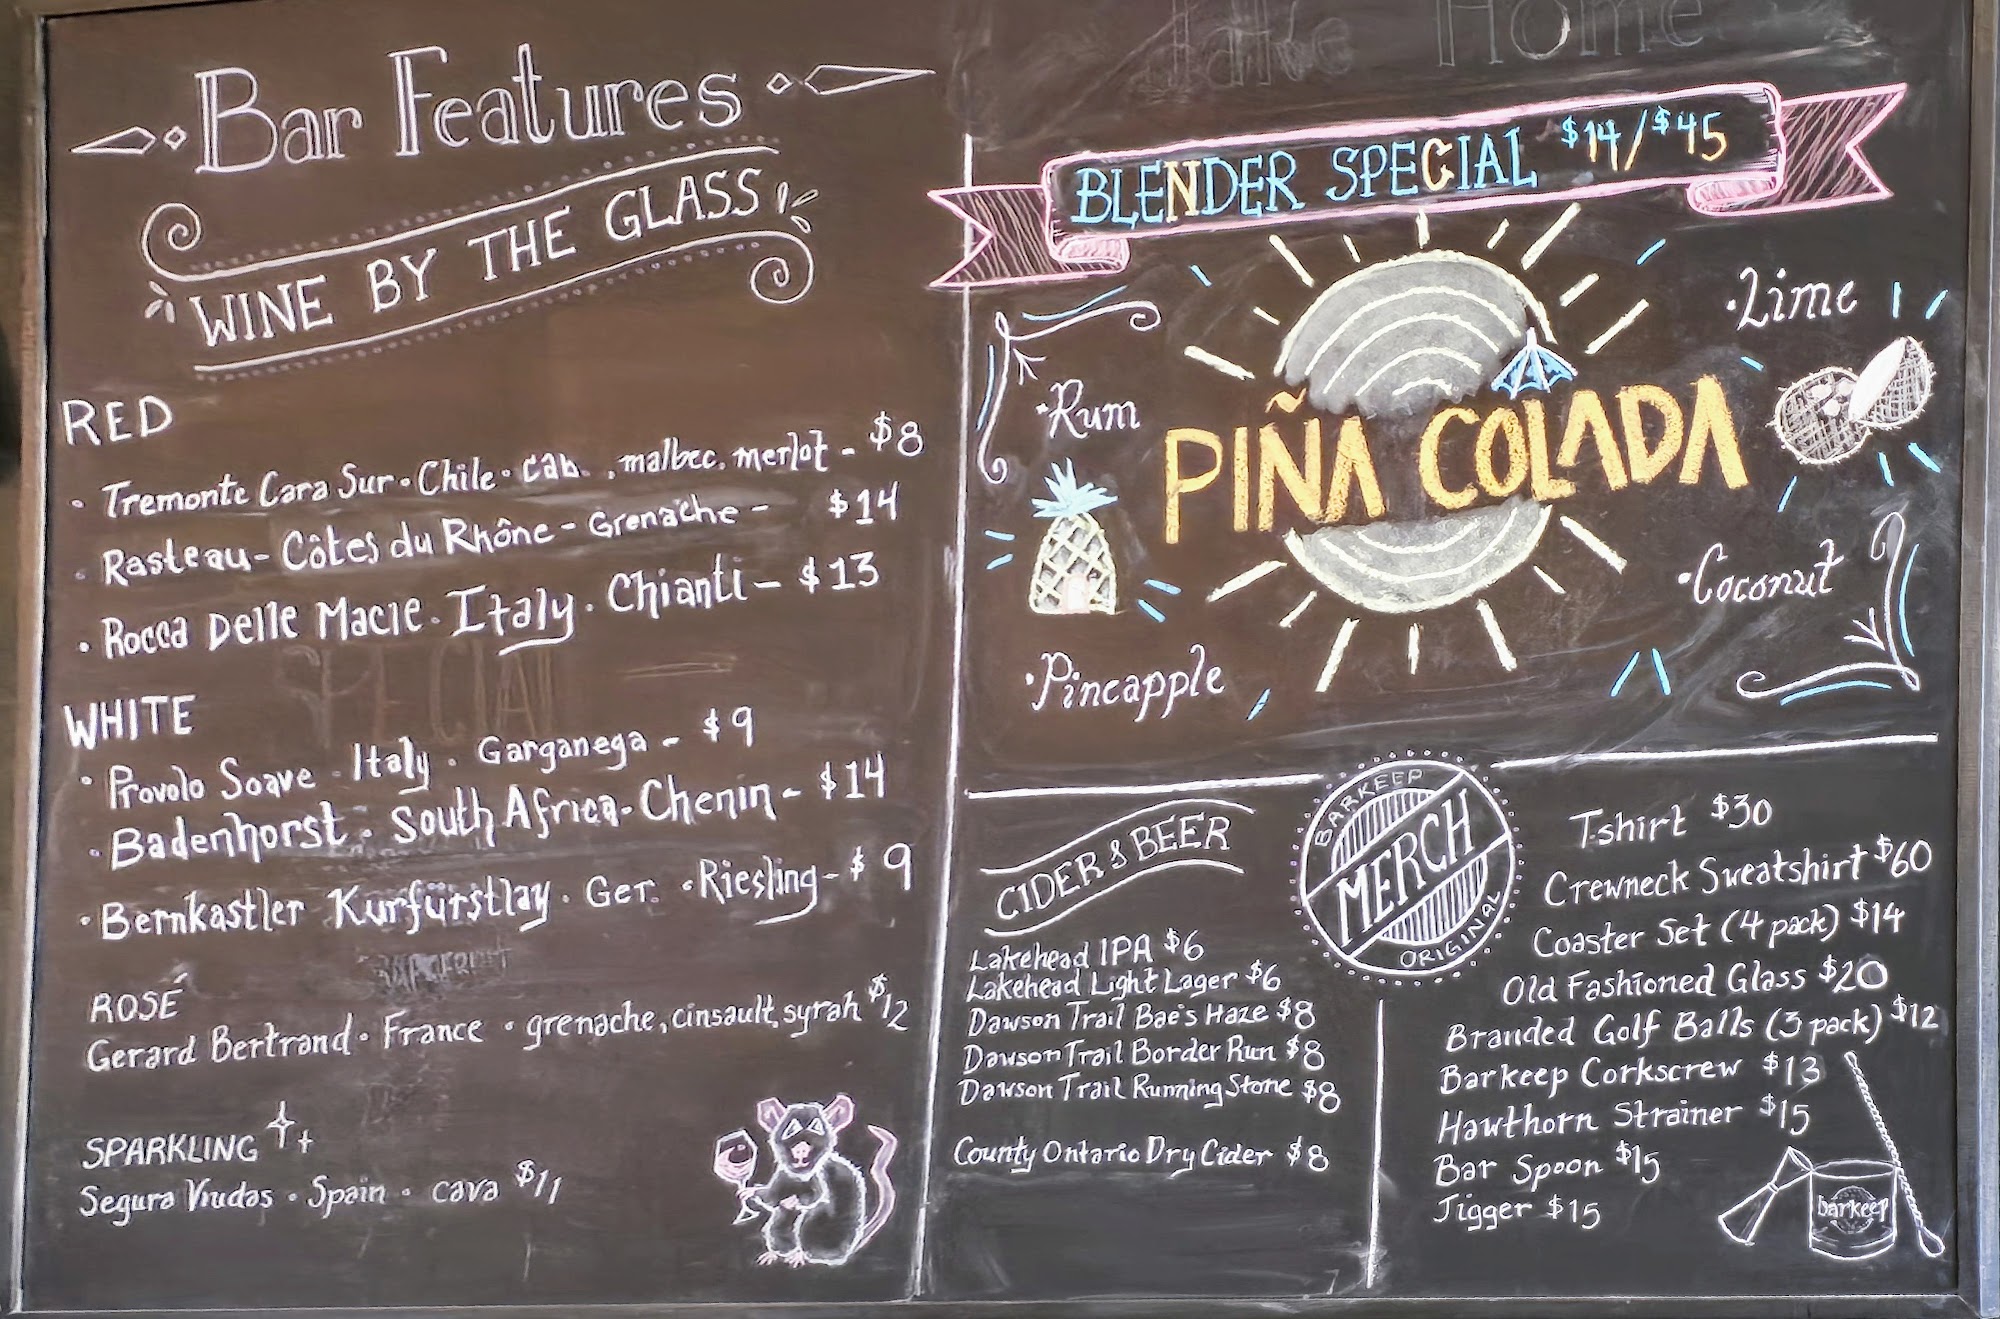 Bar Features
WINE BY THE GLASS
RED
• Tremonte Cara Sur • Chile • cab. , malbec, merlot - $8
• Rasteau - Côtes du Rhône - Grenache - $14
• Rocca Delle Macie • Italy • Chianti - $13
WHITE
• Provolo Soave • Italy • Garganega - $9
• Badenhorst • South Africa • Chenin - $14
• Bernkastler Kurfürstlay • Ger. • Riesling - $9
ROSÉ
Gerard Bertrand • France • grenache, cinsault, syrah $12
SPARKLING
Segura Viudas • Spain • cava $11
Take Home
BLENDER SPECIAL $14/$45
• Lime
• Rum
PIÑA COLADA
• Coconut
• Pineapple
CIDER & BEER
Lakehead IPA $6
Lakehead Light Lager $6
Dawson Trail Bae's Haze $8
Dawson Trail Border Run $8
Dawson Trail Running Stone $8
County Ontario Dry Cider $8
BARKEEP
MERCH
ORIGINAL
T-shirt $30
Crewneck Sweatshirt $60
Coaster Set (4 pack) $14
Old Fashioned Glass $20
Branded Golf Balls (3 pack) $12
Barkeep Corkscrew $13
Hawthorn Strainer $15
Bar Spoon $15
Jigger $15
barkeep